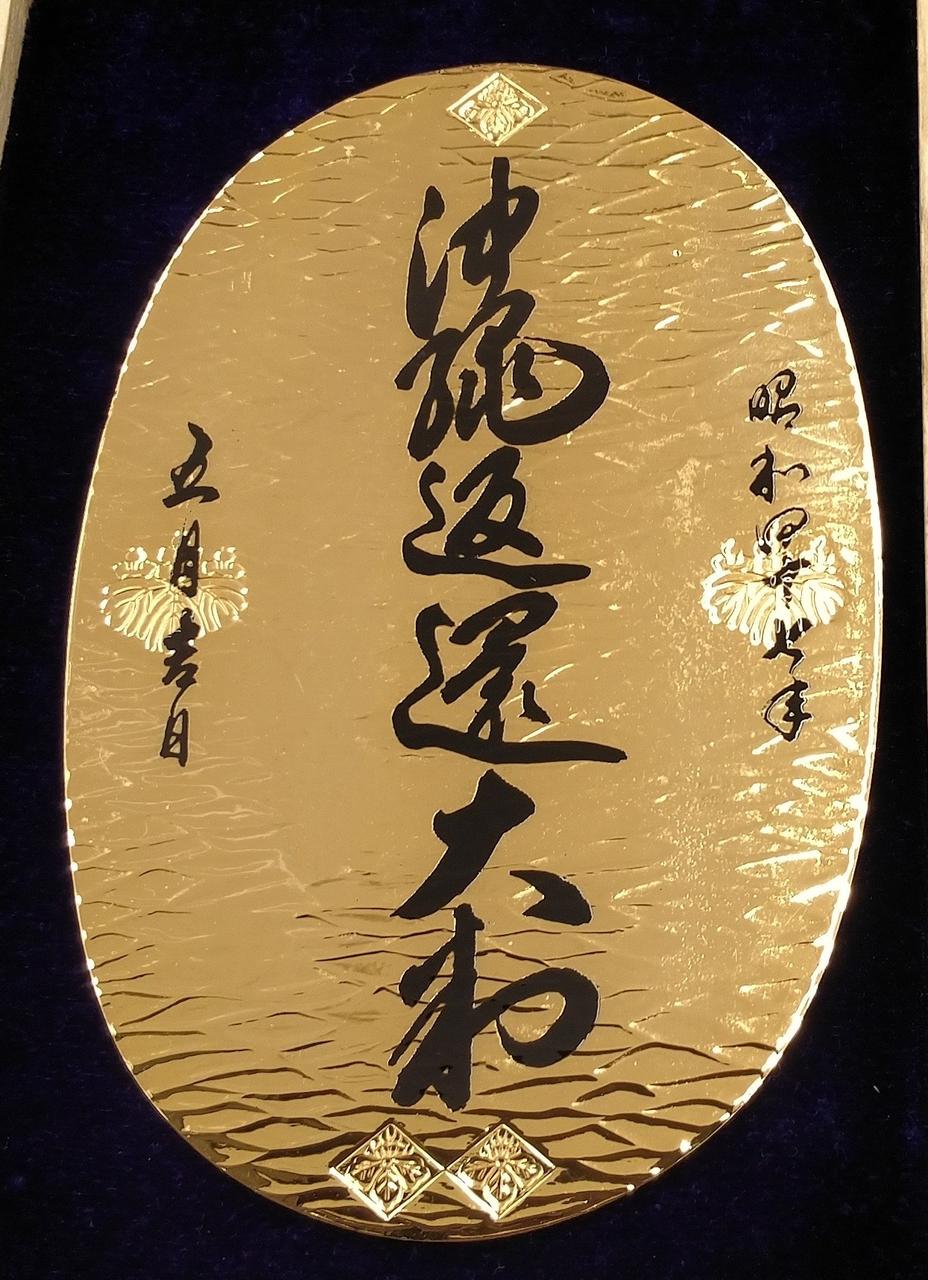 昭和四十七年
沖縄返還大判
五月吉日